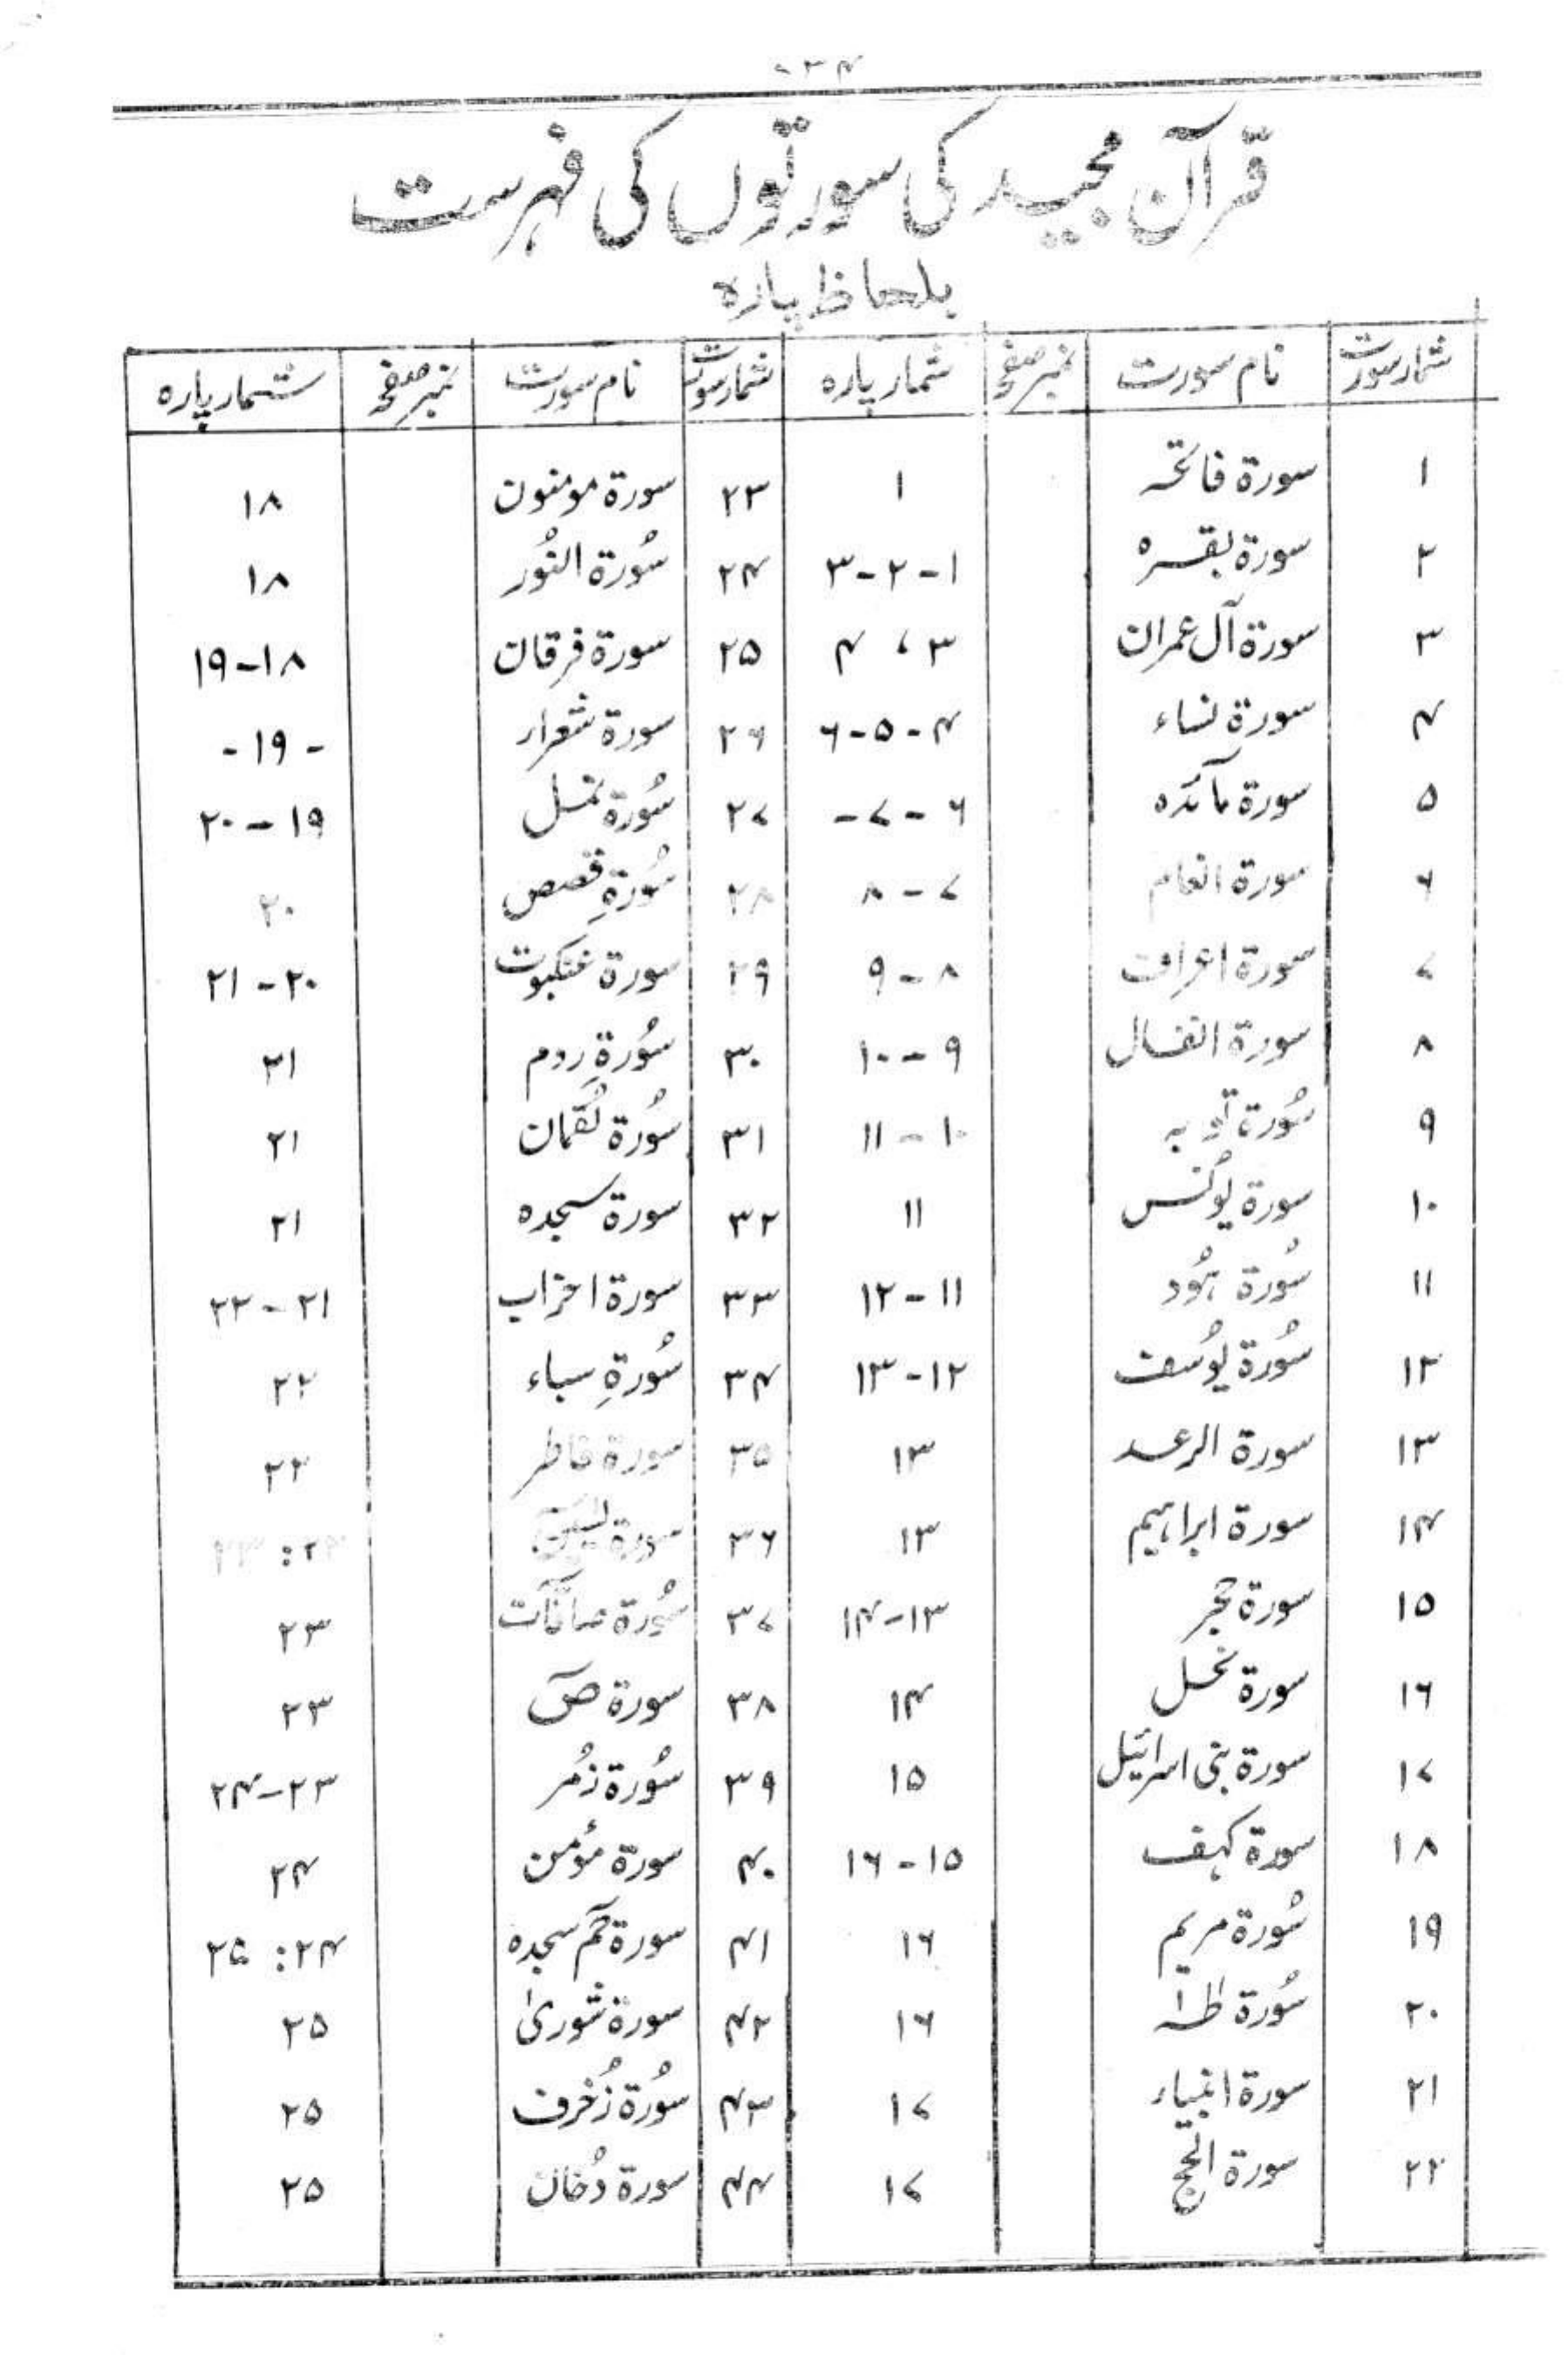 قرآن مجید کی سورتوں کی فہرست
بلحاظ پارہ
شمار سورت نام سورت نمبر صفحہ شمار پارہ شمار سورت نام سورت نمبر صفحہ شمار پارہ
۱ سورۃ فاتحہ ۱ ۲۳ سورۃ مومنون ۱۸
۲ سورۃ بقرہ ۱-۲-۳ ۲۴ سُورۃ النُور ۱۸
۳ سورۃ آل عمران ۳، ۴ ۲۵ سورۃ فرقان ۱۸-۱۹
۴ سورۃ نساء ۴-۵-۶ ۲۶ سورۃ شعراء -۱۹-
۵ سورۃ مآئدہ ۶-۷- ۲۷ سُورۃ نمل ۱۹-۲۰
۶ سورۃ انعام ۷-۸ ۲۸ سُورۃِ قصص ۲۰
۷ سورۃ اعراف ۸-۹ ۲۹ سورۃ عنکبوت ۲۰-۲۱
۸ سورۃ انفال ۹-۱۰ ۳۰ سُورۃِ روم ۲۱
۹ سُورۃ توبہ ۱۰-۱۱ ۳۱ سُورۃ لُقمان ۲۱
۱۰ سورۃ یُونس ۱۱ ۳۲ سورۃ سجدہ ۲۱
۱۱ سُورۃ ہُود ۱۱-۱۲ ۳۳ سورۃ احزاب ۲۱-۲۲
۱۲ سُورۃ یُوسف ۱۲-۱۳ ۳۴ سُورۃِ سباء ۲۲
۱۳ سورۃ الرعد ۱۳ ۳۵ سورۃ فاطر ۲۲
۱۴ سورۃ ابراہیم ۱۳ ۳۶ سورۃ یٰسین ۲۲: ۲۳
۱۵ سورۃ حجر ۱۳-۱۴ ۳۷ سُورۃ صآفّات ۲۳
۱۶ سورۃ نحل ۱۴ ۳۸ سورۃ صٓ ۲۳
۱۷ سورۃ بنی اسرائیل ۱۵ ۳۹ سُورۃ زمُر ۲۳-۲۴
۱۸ سورۃ کہف ۱۵-۱۶ ۴۰ سورۃ مؤمن ۲۴
۱۹ سُورۃ مریم ۱۶ ۴۱ سورۃ حٰمٓ سجدہ ۲۴: ۲۵
۲۰ سُورۃ طٰہٰ ۱۶ ۴۲ سورۃ شورىٰ ۲۵
۲۱ سورۃ انبیاء ۱۷ ۴۳ سُورۃ زُخرف ۲۵
۲۲ سورۃ الحج ۱۷ ۴۴ سورۃ دُخان ۲۵